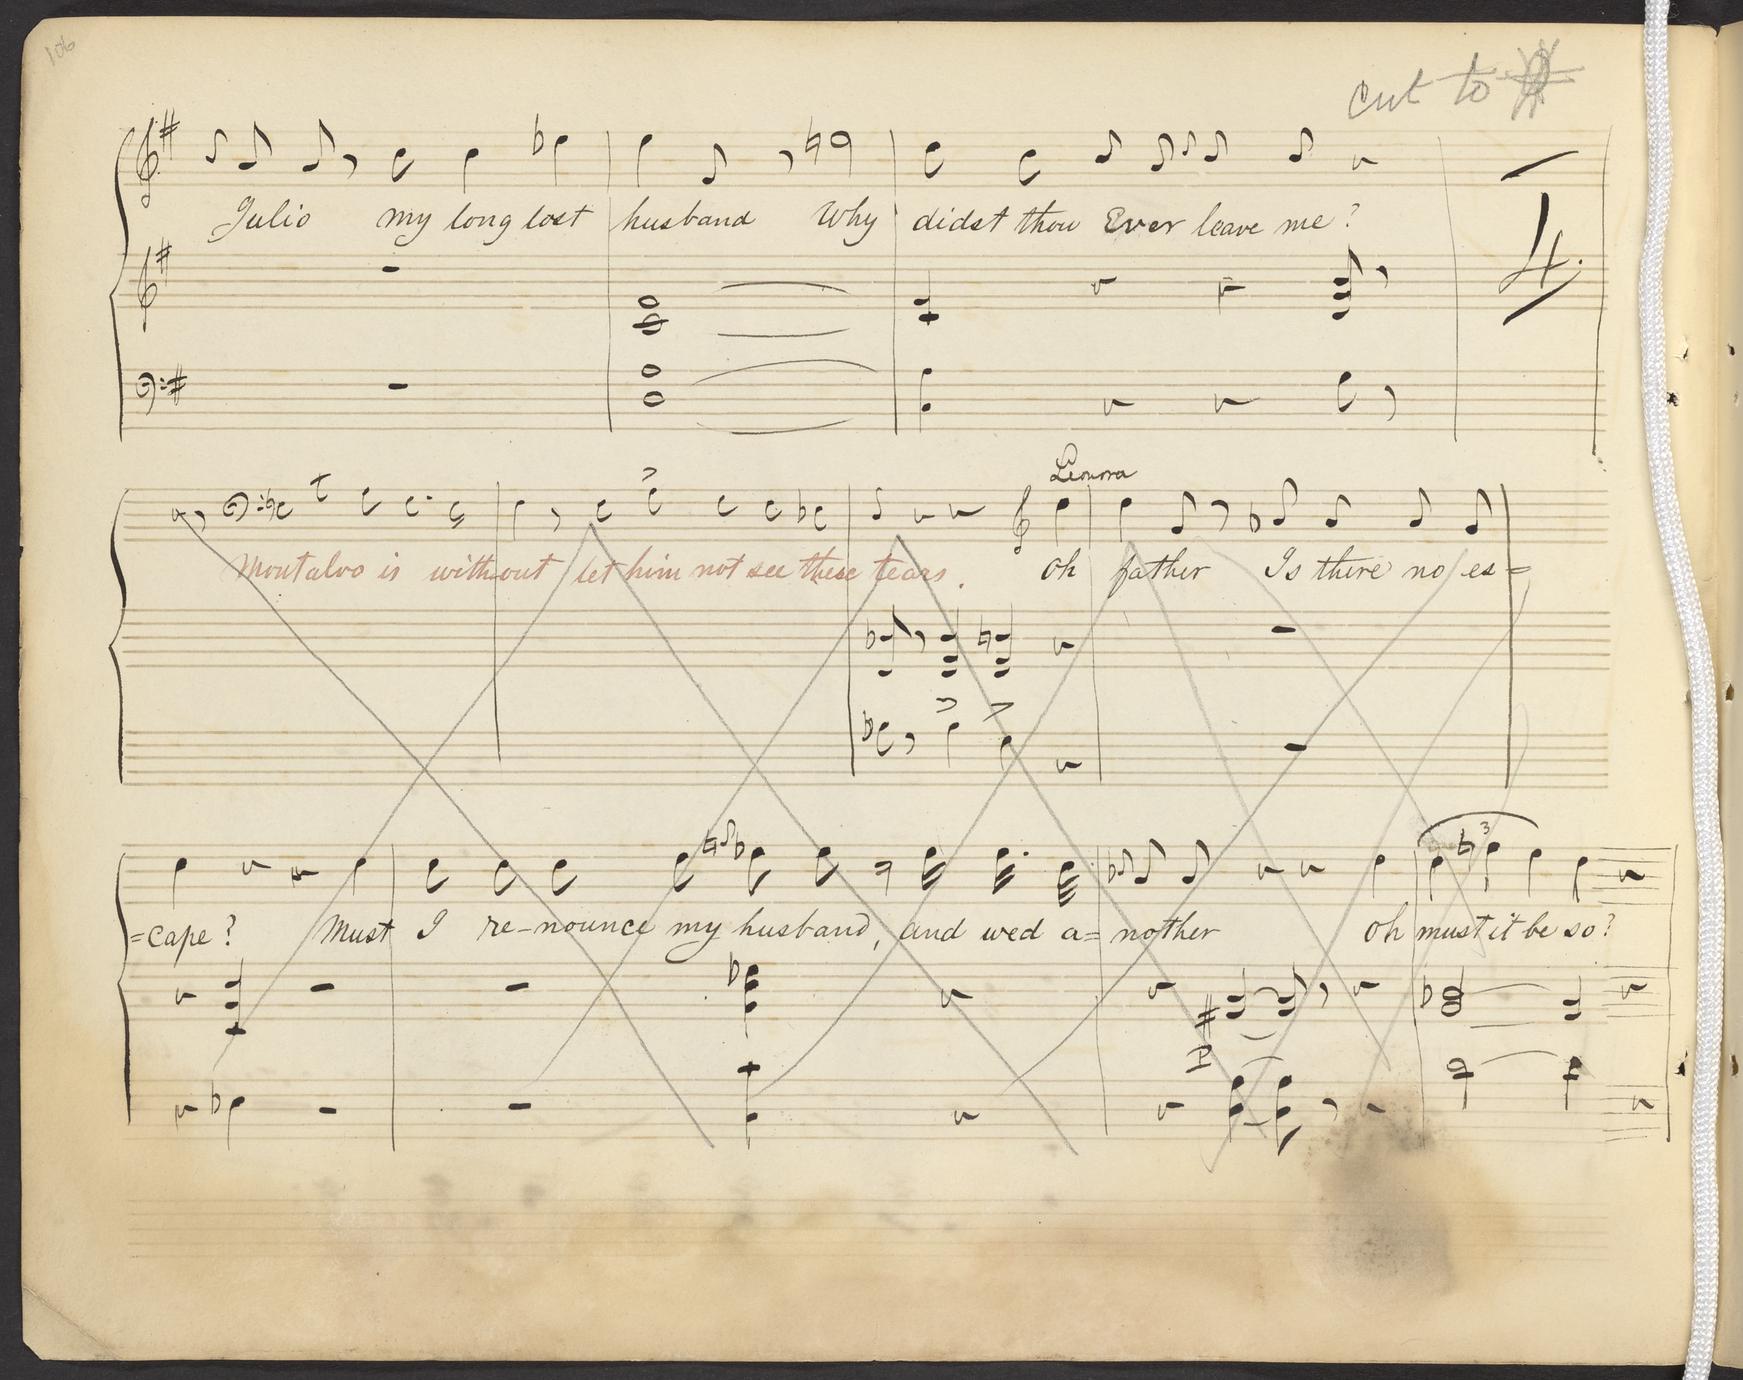 106
cut to
Julio my long lost husband Why didst thou Ever leave me?
4.
Leonora
Montalvo is without let him not see these tears. oh father Is there no es=
=cape? Must I re-nounce my husband, and wed a=nother oh must it be so?
3
P